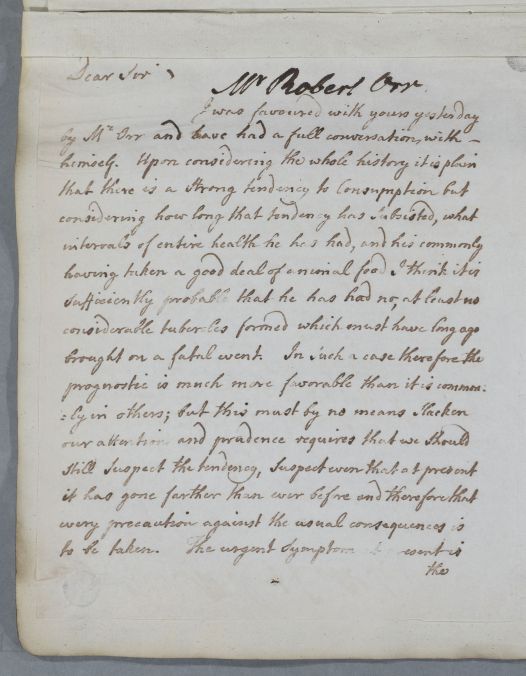 Dear Sir,
Mr Robert Orr.
I was favoured with yours yesterday
by Mr Orr and have had a full conversation, with -
himself. Upon considering the whole history it is plain
that there is a strong tendency to Consumption but
considering how long that tendency has subsisted, what
intervals of entire health he has had, and his commonly
having taken a good deal of animal food I think it is
sufficiently probable that he has had no, at least no
considerable tubercles formed which must have long ago
brought on a fatal event. In such a case therefore the
prognostic is much more favorable than it is common:
:ly in others; but this must by no means slacken
our attention and prudence requires that we should
still suspect the tendency, suspect even that at present
it has gone farther than ever before and therefore that
every precaution against the usual consequences is
to be taken. The urgent symptom at present is
the